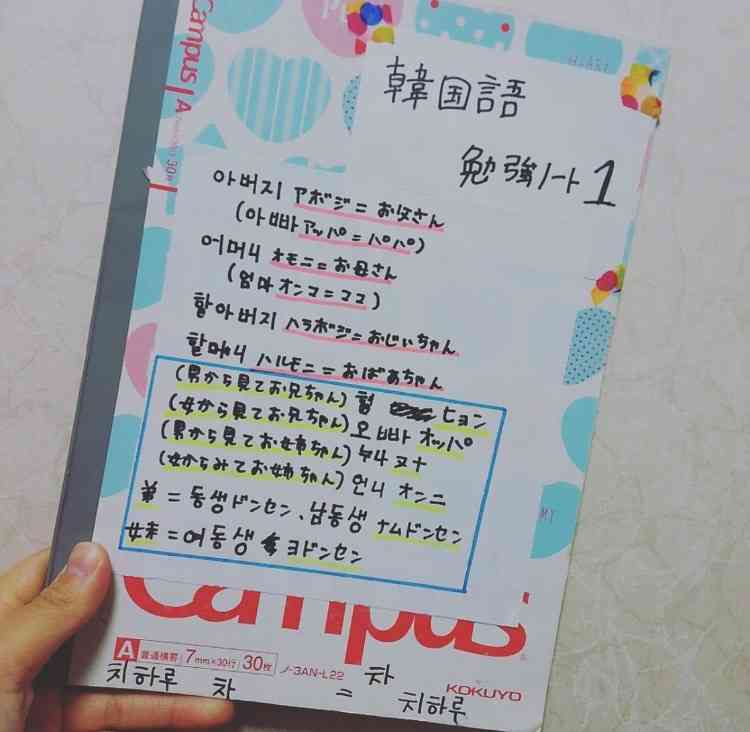 Campus A
30枚
HEART
韓国語
勉強ノート1
아버지 アボジ=お父さん
(아빠 アッパ=パパ)
어머니 オモニ=お母さん
(엄마 オンマ=ママ)
할아버지 ハラボジ=おじいちゃん
할머니 ハルモニ=おばあちゃん
(男から見てお兄ちゃん) 형 ヒョン
(女から見てお兄ちゃん) 오빠 オッパ
(男から見てお姉ちゃん) 누나 ヌナ
(女からみてお姉ちゃん) 언니 オンニ
弟=동생ドンセン、남동생 ナムドンセン
妹=여동생 ヨドンセン
Campus
A 普通横罫 7mm×30行 30枚 ノ-3AN-L22
KOKUYO
치하루 차 = 차 치하루